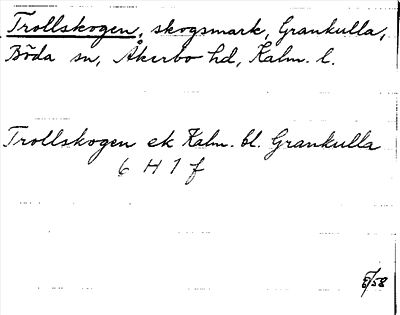 Trollskogen, skogsmark, Grankulla,
Böda sn, Åkerbo hd, Kalm. l.
Trollskogen ek Kalm. bl. Grankulla
6 H 1 f
/58